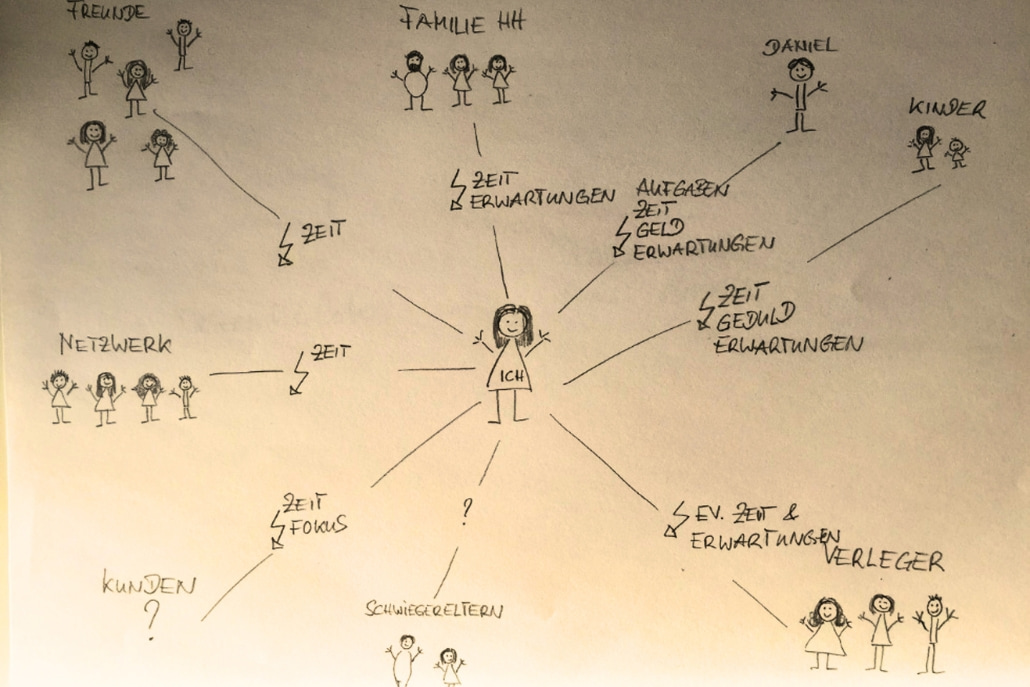 FREUNDE
FAMILIE HH
DANIEL
KINDER
ZEIT
ERWARTUNGEN
AUFGABEN
ZEIT
GELD
ERWARTUNGEN
ZEIT
ZEIT
GEDULD
ERWARTUNGEN
NETZWERK
ZEIT
ICH
ZEIT
FOKUS
?
EV. ZEIT &
ERWARTUNGEN
VERLEGER
KUNDEN
?
SCHWIEGERELTERN